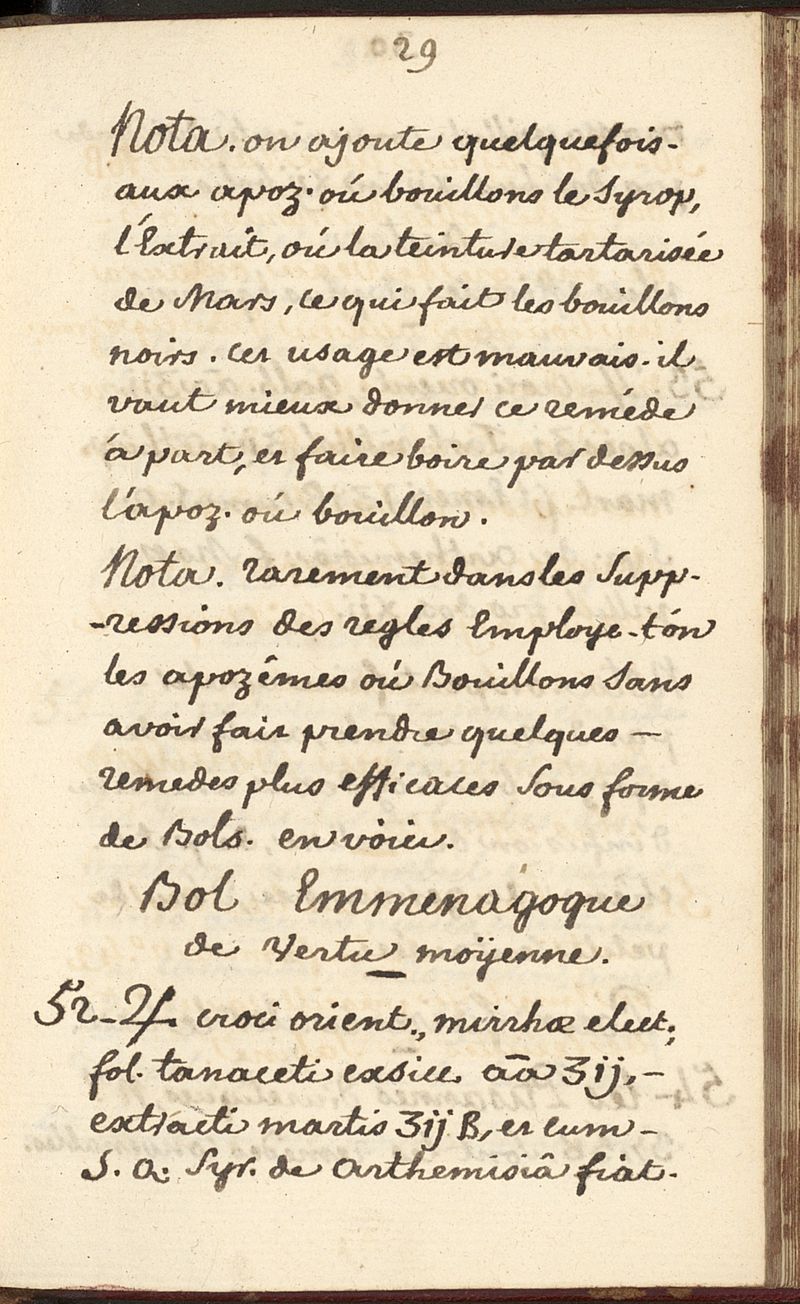 29
Nota. on ajoute quelquefois-
aux apoz. oú bouillons le Syrop,
l'Extrait, oú la teinture tartarisée
de Mars, ce qui fait les bouillons
noirs. cet usage est mauvais. il
vaut mieux donner ce reméde
á part, et faire boire par dessus
l'apoz. oú bouillon.
Nota. rarement dans les Supp-
-ressions des regles Employe-t'on
les apozêmes oú Bouillons Sans
avoir fait prendre quelques —
remedes plus efficaces Sous forme
de Bols. en voici.
Bol Emmenágogue
de Vertu moÿenne.
52-♃. croci orient., mirrhæ elect;
fol. tanaceti exsicc. aā ʒij, -
extracti martis ʒij ß, et cum -
S. a. Syr. de arthemisiâ fiat.